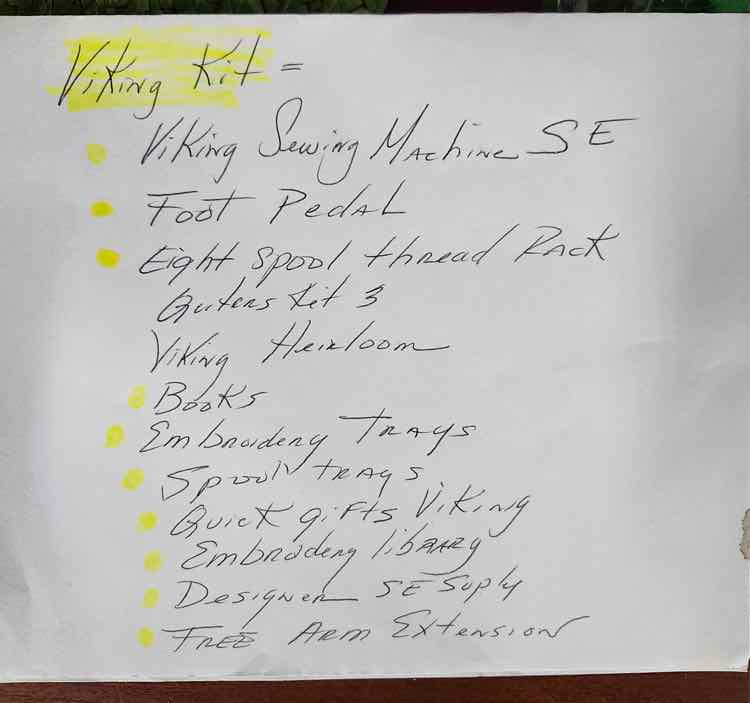 Viking Kit =
Viking Sewing Machine SE
Foot Pedal
Eight spool thread Rack
Quters Kit 3
Viking Heirloom
Books
Embroidery Trays
Spool trays
Quick gifts Viking
Embroidery library
Designer SE Suply
Free Arm Extension